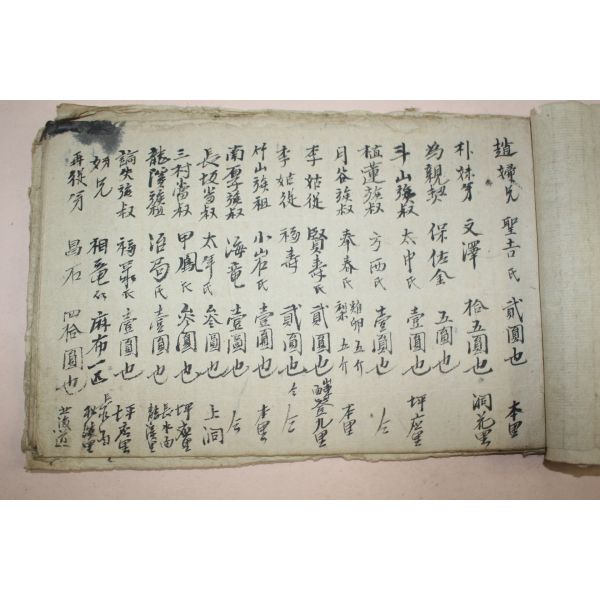 趙婦兄 聖吉氏 貳圓也 本里
朴妹芳 文澤 拾五圓也 洞花里
為親契 保佐金 五圓也
斗山族叔 太中氏 壹圓也 坪座里
植蓮族叔 方西氏 壹圓也 仝
月谷族叔 奉春氏 鷄卵五介 梨五介 本里
李姑從 賢壽氏 貳圓也 壹九里
李姑從 福壽 貳圓也 仝
竹山族祖 小岩氏 壹圓也 本里
南原族叔 海龍 壹圓也 仝
長坂堂叔 太年氏 參圓也 上洞
三村堂叔 甲鳳氏 參圓也 坪座里
龍潭族祖 氏 壹圓也 長水面 龍溪里
族叔 福 氏 壹圓也 坪座里
妍兄 相龍氏 麻布一疋
再從芳 昌石 四拾圓也